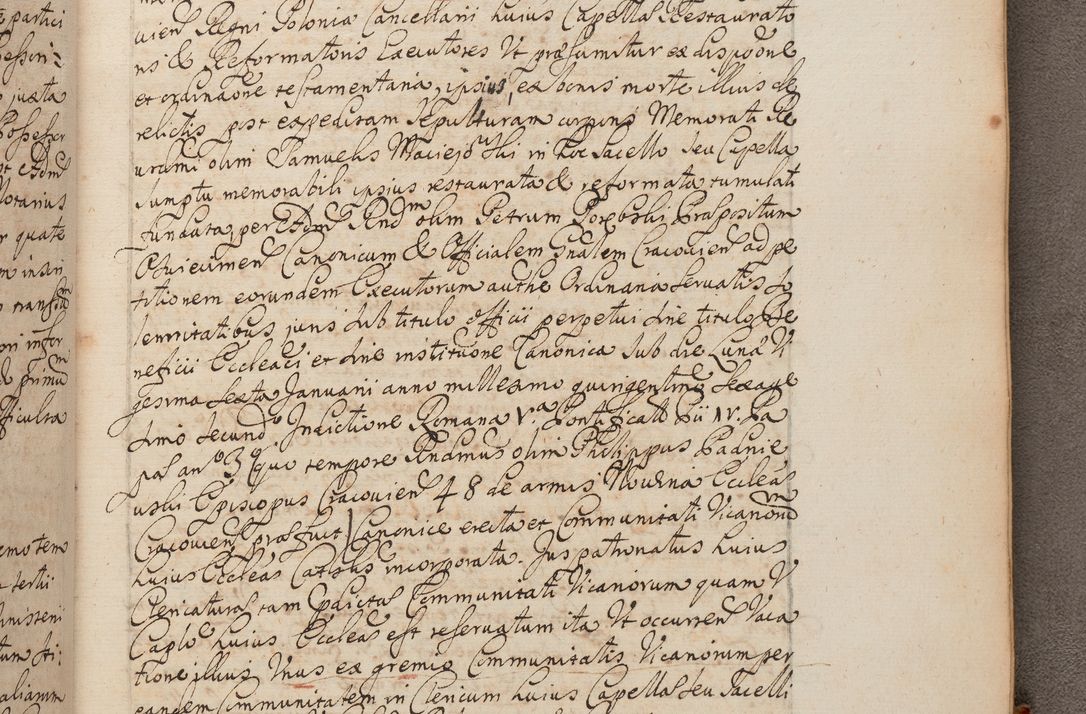 e partici
Possessori:
juxta
Possessor
Notarius
r quate
m inscri
transsum
ori infor
primu
fficulta
emo tem
tertii
ministerii
tum sti:
aliarum
uien Regni Polonia Cancellarii huius Capellae Restaurato
ris & Reformatoris Executores Ut praesumitur ex dispoone
et ordinaone testamentaria ipsius, ex bonis morte illius de
relictis post expeditam sepulturam corporis Memorati Re
urdmi olim Samuelis Maciejowski in hoc sacello seu Capella
Sumptu memorabili ipsius restaurata & reformata tumulati
fundata, per Adm Rndm olim Petrum Porębski Praepositum
Canonicum & Officialem Gnalem Cracovien ad pe
titionem eorundem Executorum authe Ordinaria servatis so
lemnitatibus juris sub titulo officii perpetui sine titulo Be
neficii Eccleaci et sine institutione Canonica sub die Luna Vi
gesima sexta Januarii anno millesimo quingentmo sexage
simo secundo Indictione Romana V.a Pontificato Pii IV. Pa
pae anno 3o quo tempore Rndmus olim Philippus Padnie
uski Episcopus Cracovien 48 de armis Nowina Eccleae
Cracovien praefuit Canonice erecta et Communitati Vicariorum
huius Eccleae Cathlis incorporata. Jus patronatus huius
Clericaturae tam pdictae Communitati Vicariorum quam V
Caplo huius Eccleae est reservatum ita Ut occurren Vaca
tione illius Unus ex gremio Communitatis Vicariorum per
eandem Communitatem in Clericum huius Capellae seu Sacelli